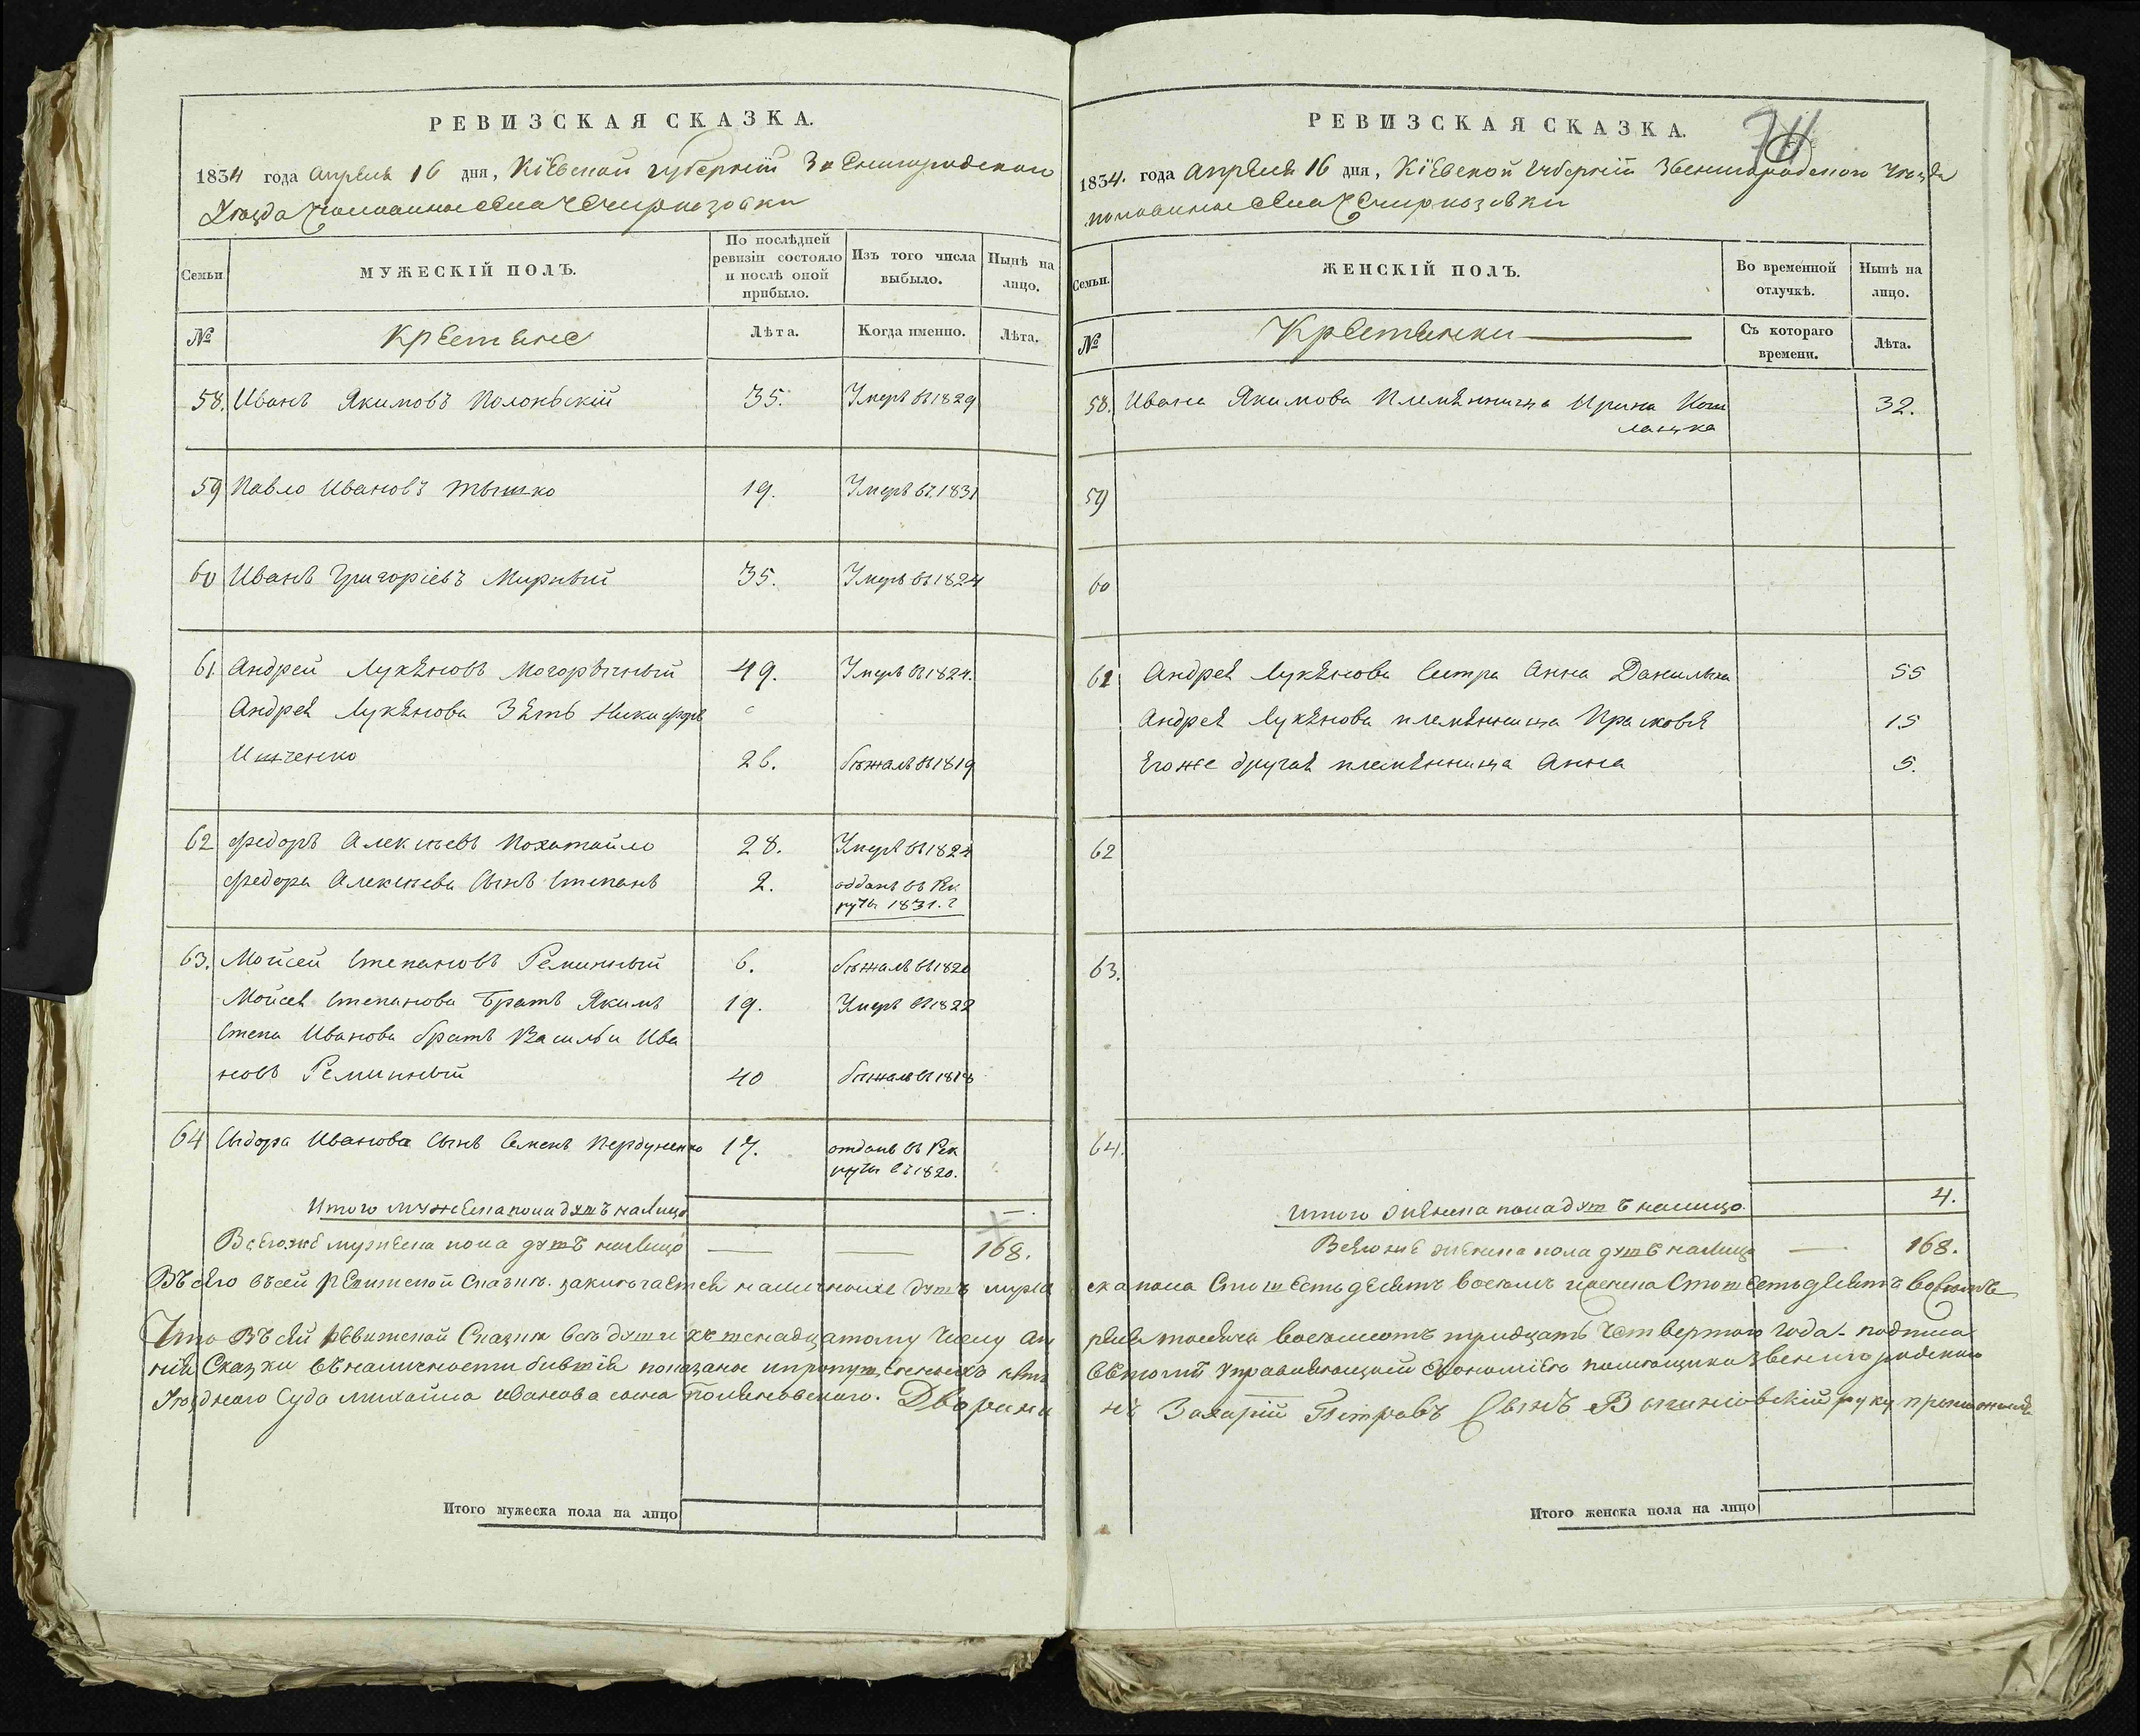 РЕВИЗСКАЯ СКАЗКА.
1834 года Апреля 16 дня, Кіевской губерніи Звенигородскаго
Уезда половинное села Скирпозовки
Семьи
МУЖЕСКІЙ ПОЛЪ.
По послѣдней ревизіи состояло и послѣ оной прибыло.
Изъ того числа выбыло.
Нынѣ на лицо.
№
Крестяне
Лѣта.
Когда именно.
Лѣта.
58. Иванъ Якимовъ Полонскій 35. Умеръ въ 1829
59 Павло Ивановъ Тышко 19. Умеръ въ 1831
60 Иванъ Григоріевъ Мирный 35. Умеръ въ 1824
61. Андрей Лукяновъ Могорычный 49. Умеръ въ 1824.
Андрея Лукянова Зять Никифоръ
Ищенко 26. бѣжалъ въ 1819
62 Федоръ Алексѣевъ Похотайло 28. Умеръ въ 1824
Федора Алексѣева Сынъ Степанъ 2. отданъ въ Рек
руты 1831. г
63. Мойсей Степановъ Реминный 6. бѣжалъ въ 1820
Мойсея Степанова Братъ Якимъ 19. Умеръ въ 1822
Степа Иванова братъ Василъи Ива
новъ Реминный 40 бѣжалъ въ 1818
64 Сидора Иванова Сынъ Семенъ Пердуненко 17. отданъ въ Рек
руты въ 1820.
Итого мужеска пола душъ налицо —.
Всего же мужеска пола душъ налицо — — 168.
Въсего въсей ревижской сказкѣ заключается наличныхъ душъ муже
Что Въсей ревижской Сказки все души къ шенадцатому Числу Ап
ній Сказки въналичности бывшія показаное ипропущенныхъ нетъ
Уезднаго Суда михайла иванова сына Поляновского. Дворяни
Итого мужеска пола на лицо
РЕВИЗСКАЯ СКАЗКА.
74
1834. года Апреля 16 дня, Кіевской губерніи Звенигородскаго Уезда
половинное села Скирпозовки
Семьи.
ЖЕНСКІЙ ПОЛЪ.
Во временной отлучкѣ.
Нынѣ на лицо.
№
Крестянки
Съ котораго времени.
Лѣта.
58. Ивана Якимова Племянница Ирина Кош
лацка 32.
59
60
61 Андрея Лукянова Сестра Анна Данилиха 55
Андрея Лукянова племянница Прасковя 15
Егоже другая племянница Анна 5.
62
63.
64.
Итого женска пола душъ налицо. 4.
Всего же женска пола душъ налицо — 168.
ска пола Сто шестьдесятъ восемъ иженска Сто шестьдесятъ восемъ
реля тысяча восемсотъ тридцать Четвертого года. подписа
Управляющій Економіею помещика Звенигородскаго
нъ Захарій Петровъ Сынъ руку приложилъ
Итого женска пола на лицо